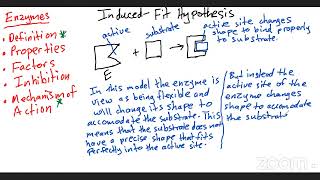 Enzymes
• Definition *
• Properties
• Factors
• Inhibition
• Mechanism of
Action *
Induced-Fit Hypothesis
active substrate
+
E
active site changes
shape to bind properly
to substrate.
In this model the enzyme is
view as being flexible and
will change its shape to
accomodate the substrate. This
means that the substrate does not
have a precise shape that fits
perfectly into the active site.
But instead the
active site of the
enzyme changes
shape to accomodate
the substrate
zoom